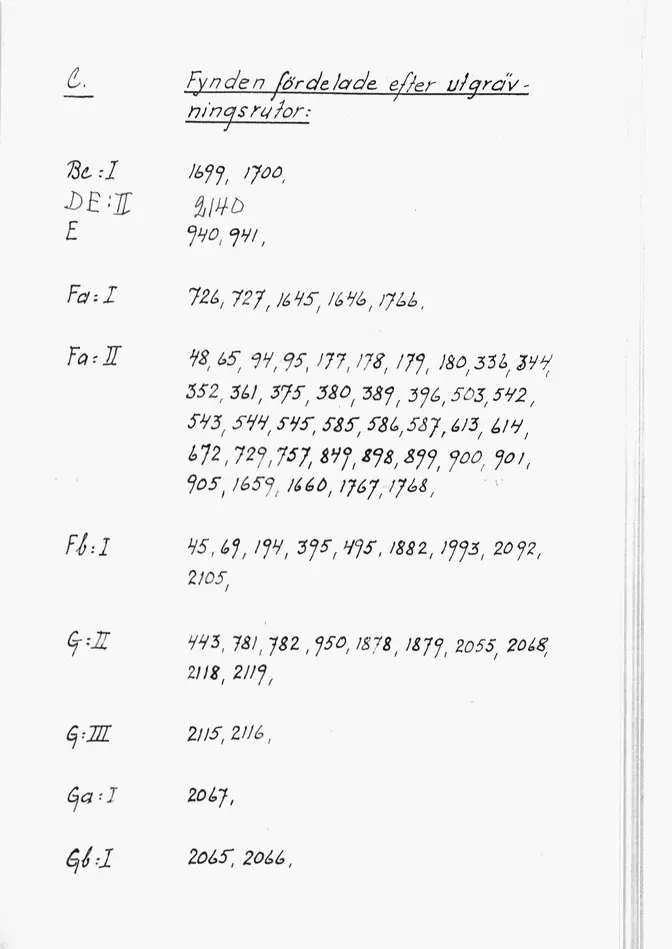 C. Fynden fördelade efter utgräv-
ningsrutor:
Bc:I 1699, 1700,
DE:II 2140
E 940, 941,
Fa:I 726, 727, 1645, 1646, 1766,
Fa:II 48, 65, 94, 95, 177, 178, 179, 180, 336, 344,
352, 361, 375, 380, 389, 396, 503, 542,
543, 544, 545, 585, 586, 587, 613, 614,
672, 729, 757, 849, 898, 899, 900, 901,
905, 1659, 1660, 1767, 1768,
Fb:I 45, 69, 194, 395, 495, 1882, 1993, 2092,
2105,
G:II 443, 781, 782, 950, 1878, 1879, 2055, 2068,
2118, 2119,
G:III 2115, 2116,
Ga:I 2067,
Gb:I 2065, 2066,